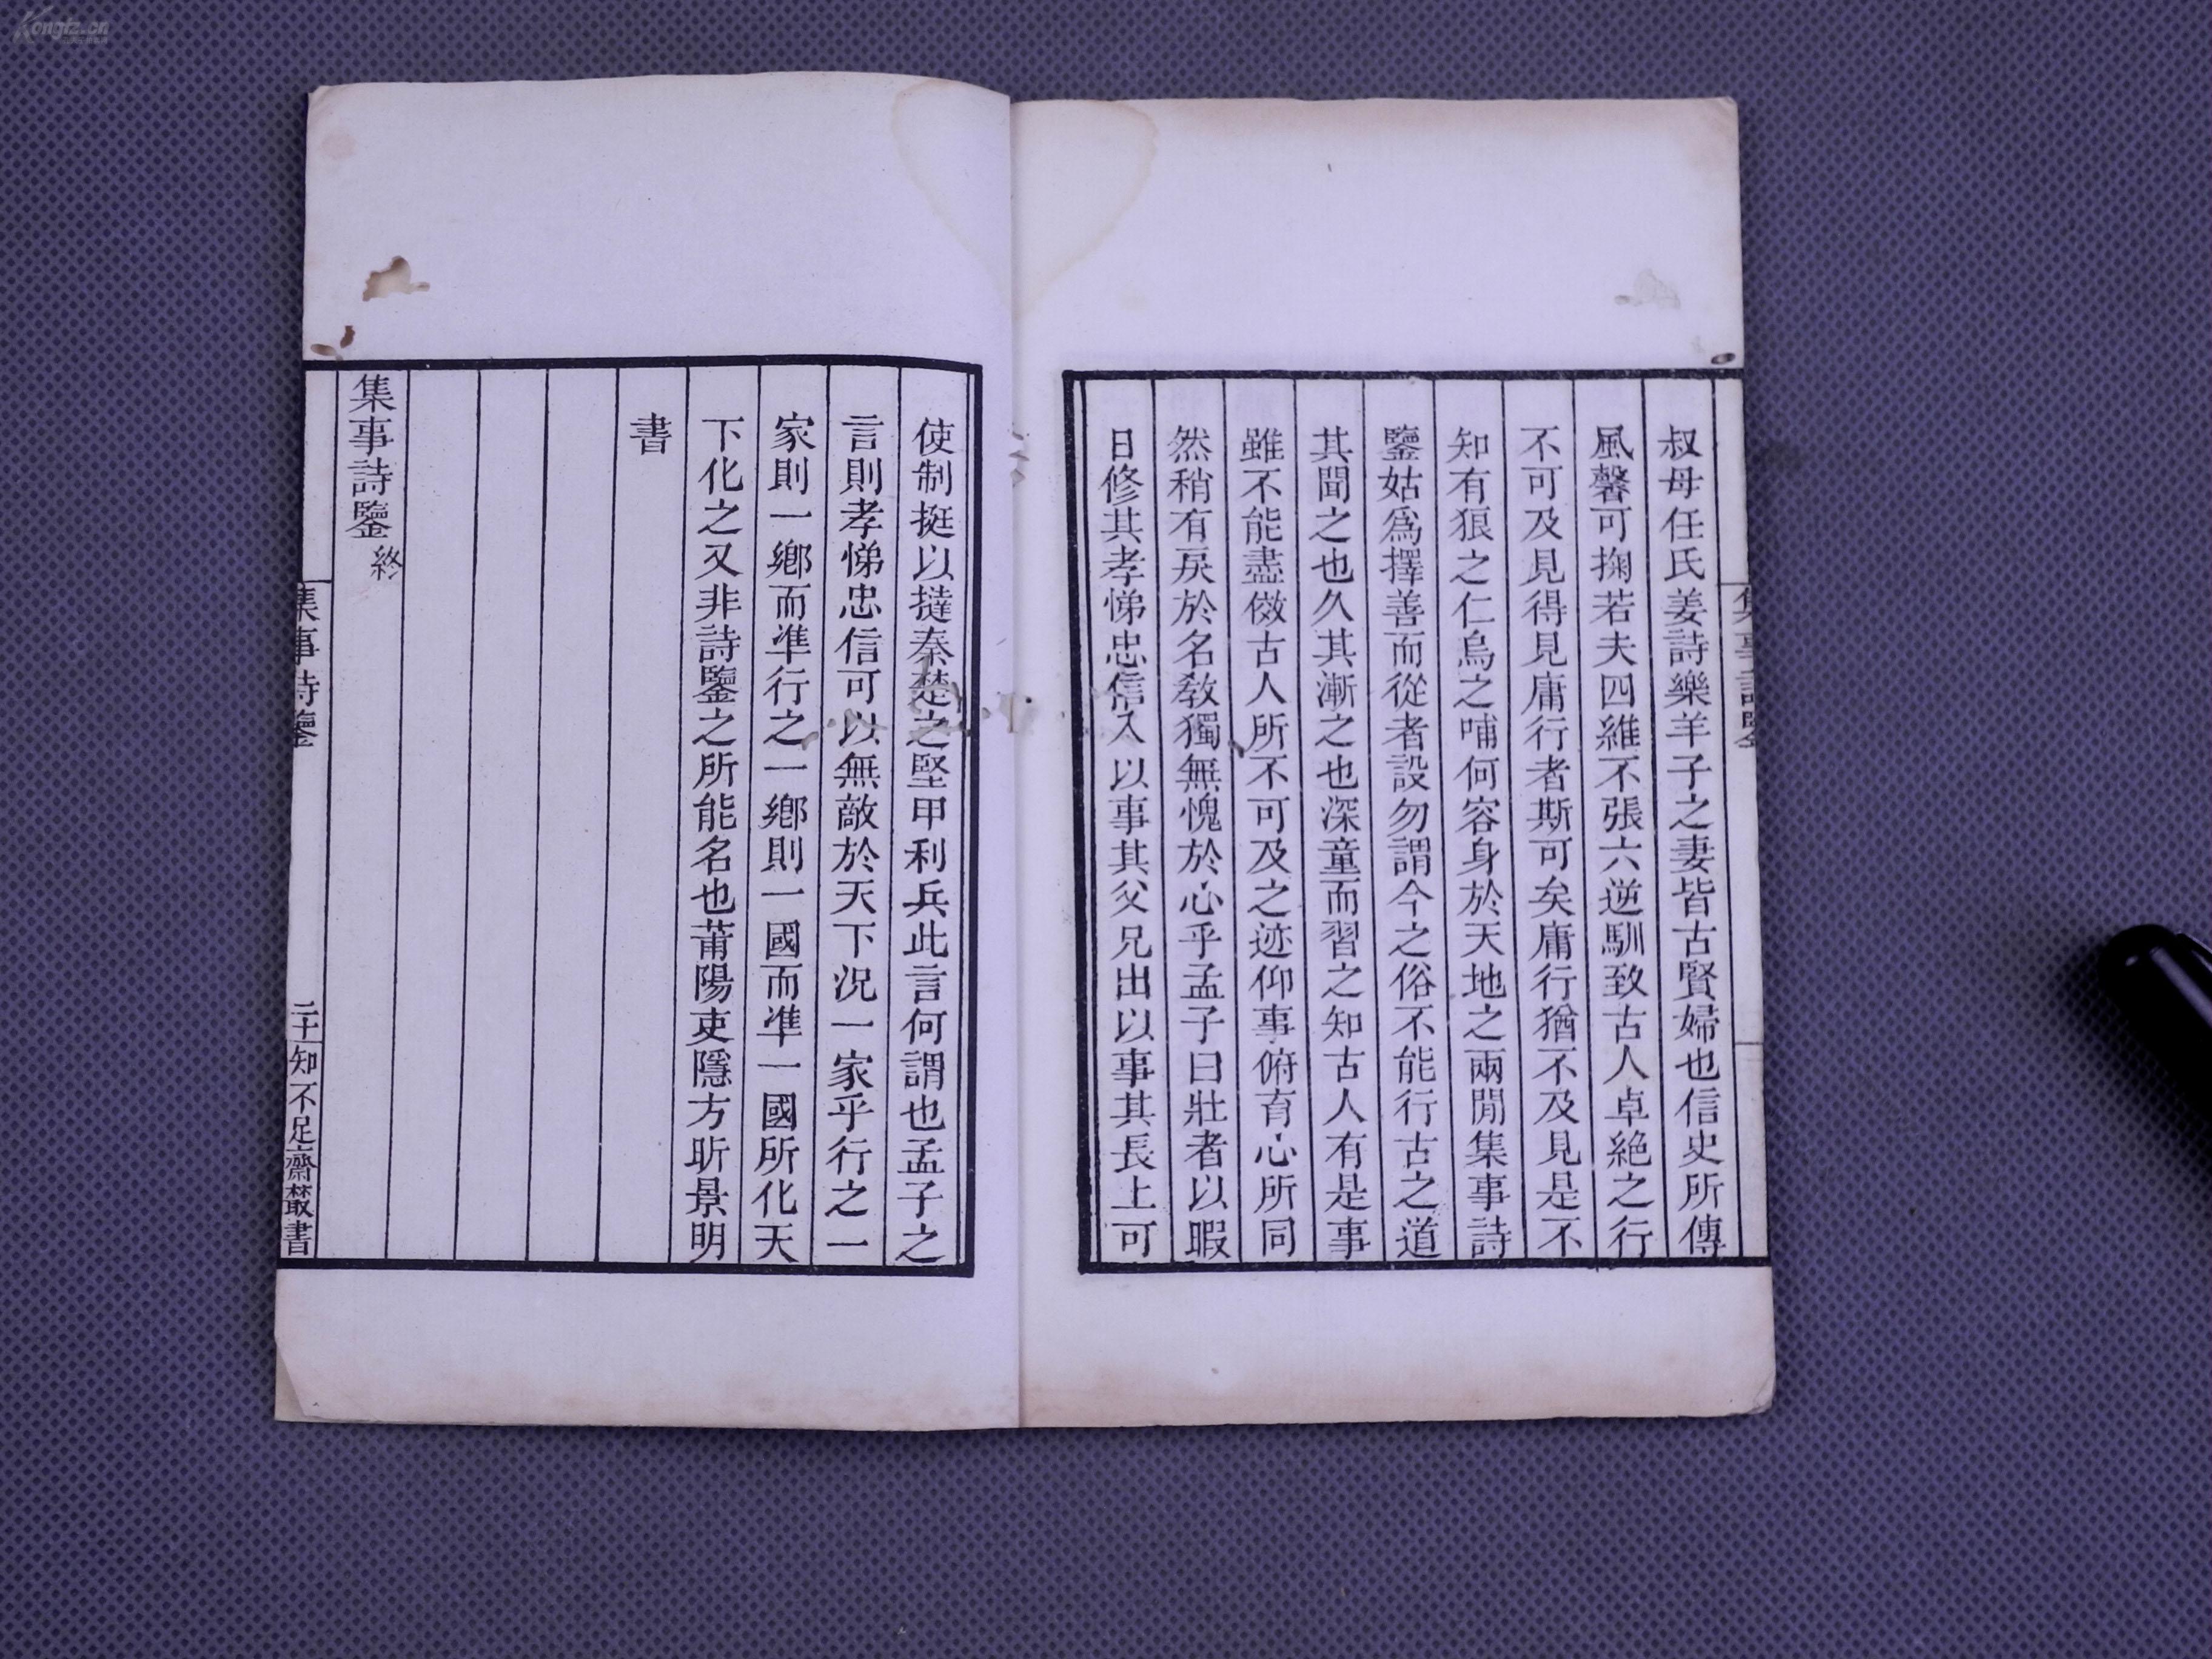 叔母任氏姜詩樂羊子之妻皆古賢婦也信史所傳
風馨可掬若夫四維不張六逆馴致古人卓絕之行
不可及見得見庸行者斯可矣庸行猶不及見是不
知有狼之仁烏之哺何容身於天地之兩閒集事詩
鑒姑爲擇善而從者設勿謂今之俗不能行古之道
其聞之也久其漸之也深童而習之知古人有是事
雖不能盡傚古人所不可及之迹仰事俯育心所同
然稍有戾於名教獨無愧於心乎孟子曰壯者以暇
日修其孝悌忠信入以事其父兄出以事其長上可
使制挺以撻秦楚之堅甲利兵此言何謂也孟子之
言則孝悌忠信可以無敵於天下況一家乎行之一
家則一鄉而準行之一鄉則一國而準一國所化天
下化之又非詩鑒之所能名也莆陽吏隱方昕景明
書
集事詩鑒終
集事詩鑒
二十
知不足齋叢書
Kongfz.cn